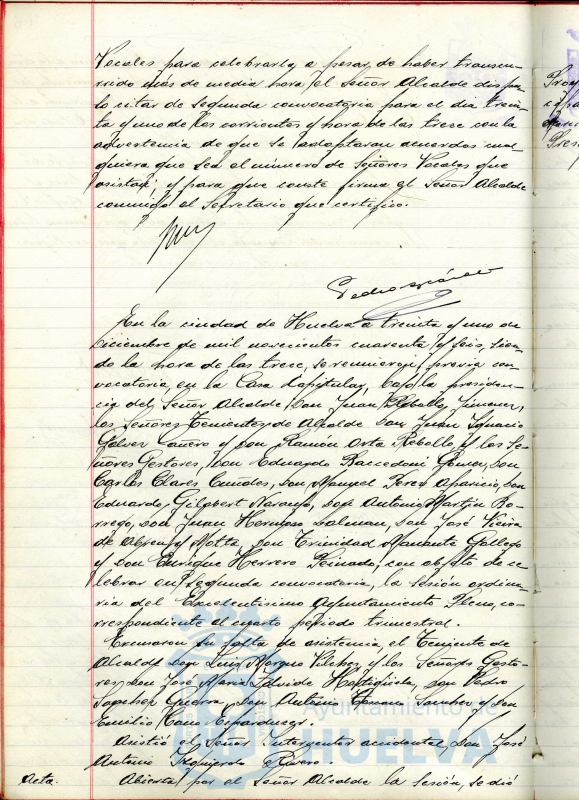 Vocales para celebrarla, a pesar de haber transcu-
rrido más de media hora, el Señor Alcalde dispu-
so citar de segunda convocatoria para el día trein-
ta y uno de los corrientes y hora de las trece con la
advertencia de que se adoptaran acuerdos cual-
quiera que sea el número de Señores Vocales que
asistan; y para que conste firma el Señor Alcalde
conmigo el Secretario que certifico.
En la ciudad de Huelva a treinta y uno de
Diciembre de mil novecientos cuarenta y seis, sien-
do la hora de las trece, se reunieron previa con-
vocatoria en la Casa Capitular, bajo la presiden-
cia del Señor Alcalde, Don Juan Rebollo Jimenez,
los Señores Tenientes de Alcalde Don Juan Ignacio
Galvez Cañero y Don Ramón Orta Rebollo y los Se-
ñores Gestores, Don Eduardo Don
Carlos Clares Don Manuel Perez Aparicio, Don
Eduardo Naranjo, Don Antonio Martín Bo-
rrego, Don Juan Hermoso Don José Vieira
de Abreu y Motta, Don Trinidad Gallego
y Don Enrique Herrero Peinado, con objeto de ce-
lebrar en segunda convocatoria, la sesión ordina-
ria del Excelentísimo Ayuntamiento Pleno, co-
rrespondiente al cuarto periodo trimestral.
Excusaron su falta de asistencia, el Teniente de
Alcalde Don Luis Moreno Vilchez y los Señores Gesto-
res Don José María Don Pedro
Guerra, Don Antonio Sanchez y Don
Emilio Cano
Asistió el Señor Interventor accidental, Don José
Antonio Izquierdo Rivero.
Acta. Abierta por el Señor Alcalde la Sesión, se dió
Ayuntamiento de
HUELVA